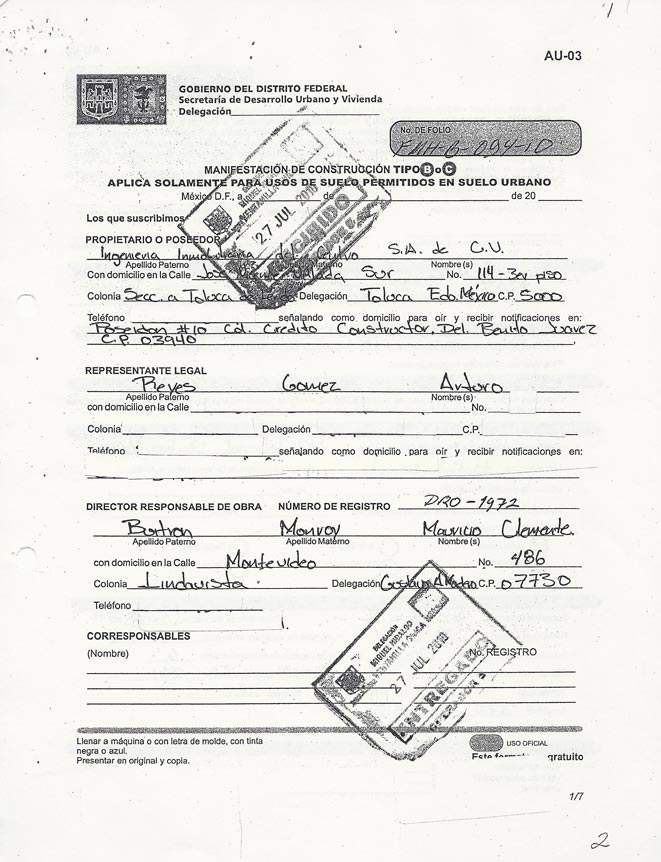 AU-03
GOBIERNO DEL DISTRITO FEDERAL
Secretaría de Desarrollo Urbano y Vivienda
Delegación
No. DE FOLIO
094-10
MANIFESTACIÓN DE CONSTRUCCIÓN TIPO B o C
APLICA SOLAMENTE PARA USOS DE SUELO PERMITIDOS EN SUELO URBANO
México D.F., a de de 20
Los que suscribimos
27 JUL 2010
PROPIETARIO O POSEEDOR
Ingenieria del Centro S.A. de C.V.
Apellido Paterno Apellido Materno Nombre (s)
Con domicilio en la Calle José Vicente Villada Sur No. 114-3er piso
Colonia Secc. a Toluca de Lerdo Delegación Toluca Edo. México C.P. 5000
Teléfono señalando como domicilio para oír y recibir notificaciones en:
Poseidon #10 Col. Credito Constructor, Del. Benito Juarez
C.P. 03940
REPRESENTANTE LEGAL
Reyes Gomez Arturo
Apellido Paterno Nombre (s)
con domicilio en la Calle No.
Colonia Delegación C.P.
Teléfono señalando como domicilio para oír y recibir notificaciones en:
DIRECTOR RESPONSABLE DE OBRA NÚMERO DE REGISTRO DRO-1972
Butron Monroy Mauricio Clemente.
Apellido Paterno Apellido Materno Nombre (s)
con domicilio en la Calle Montevideo No. 486
Colonia Lindavista Delegación Gustavo A Madero C.P. 07730
Teléfono
CORRESPONSABLES
(Nombre) No. REGISTRO
DELEGACIÓN
MIGUEL HIDALGO
VENTANILLA ÚNICA
27 JUL 2010
ENTREGADO
Llenar a máquina o con letra de molde, con tinta
negra o azul.
Presentar en original y copia.
USO OFICIAL
Este gratuito
1/7
2